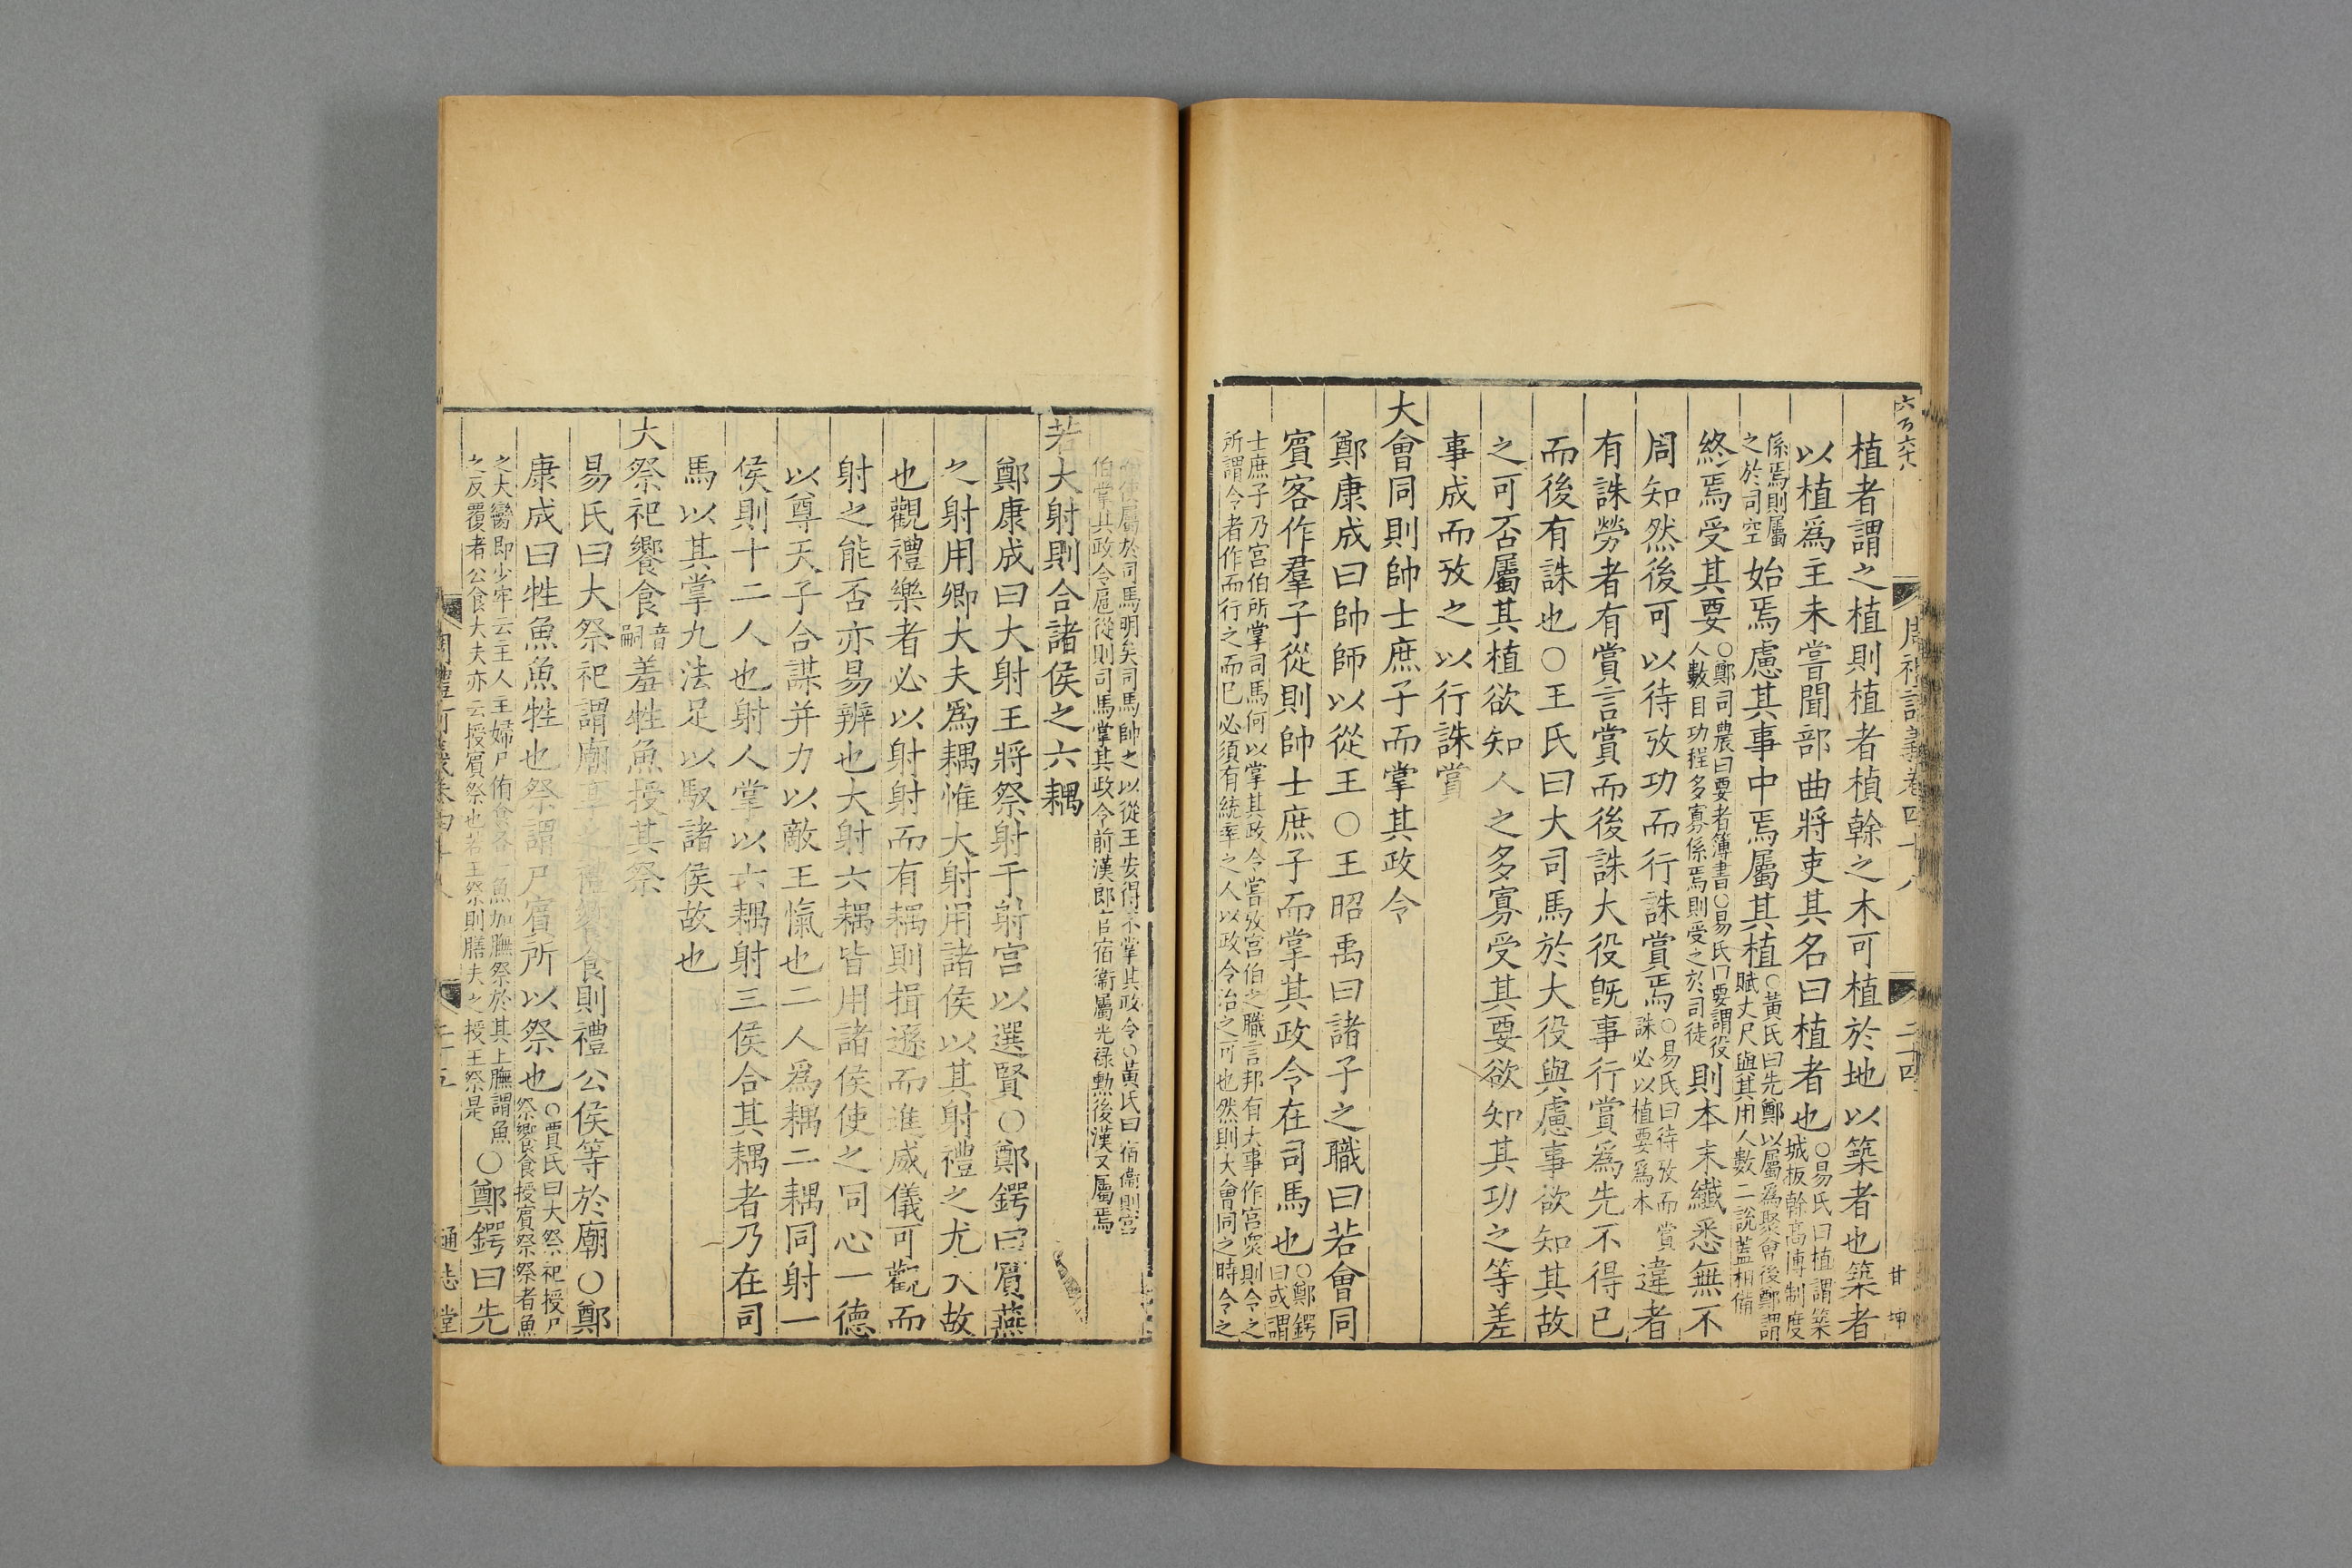 植者謂之植則植者楨榦之木可植於地以築者也築者
以植爲主未嘗聞部曲將吏其名曰植者也○易氏曰植謂築城板榦高博制度
係焉則屬之於司空始焉慮其事中焉屬其植○黃氏曰先鄭以屬爲聚會後鄭謂賦丈尺與其用人數二說蓋相備
終焉受其要○鄭司農曰要者簿書○易氏曰要謂役人數目功程多寡係焉則受之於司徒則本末纖悉無不
周知然後可以待攷功而行誅賞焉○易氏曰待攷而賞誅必以植要爲本違者
有誅勞者有賞言賞而後誅大役旣事行賞爲先不得已
而後有誅也○王氏曰大司馬於大役與慮事欲知其故
之可否屬其植欲知人之多寡受其要欲知其功之等差
事成而攷之以行誅賞
大會同則帥士庶子而掌其政令
鄭康成曰帥師以從王○王昭禹曰諸子之職曰若會同
賓客作羣子從則帥士庶子而掌其政令在司馬也○鄭鍔曰或謂
士庶子乃宮伯所掌司馬何以掌其政令嘗攷宮伯之職言邦有大事作宮衆則令之
所謂令者作而行之而已必須有統率之人以政令治之可也然則大會同之時令之
使屬於司馬明矣司馬帥之以從王安得不掌其政令○黃氏曰宿衞則宮
伯掌其政令扈從則司馬掌其政令前漢郎官宿衞屬光祿勲後漢又屬焉
若大射則合諸侯之六耦
鄭康成曰大射王將祭射于射宮以選賢○鄭鍔曰賓燕
之射用卿大夫爲耦惟大射用諸侯以其射禮之尤大故
也觀禮樂者必以射射而有耦則揖遜而進威儀可觀而
射之能否亦易辨也大射六耦皆用諸侯使之同心一德
以尊天子合謀并力以敵王愾也二人爲耦二耦同射一
侯則十二人也射人掌以六耦射三侯合其耦者乃在司
馬以其掌九法足以馭諸侯故也
大祭祀饗食音嗣羞牲魚授其祭
易氏曰大祭祀謂廟享之禮饗食則禮公侯等於廟○鄭
康成曰牲魚魚牲也祭謂尸賓所以祭也○賈氏曰大祭祀授尸祭饗食授賓祭祭者魚
之大臠即少牢云主人主婦尸侑食各一魚加膴祭於其上膴謂魚
之反覆者公食大夫亦云授賓祭也若王祭則膳夫之授王祭是○鄭鍔曰先
周禮訂義卷四十八
二十四
二十五
通志堂
甘
坤